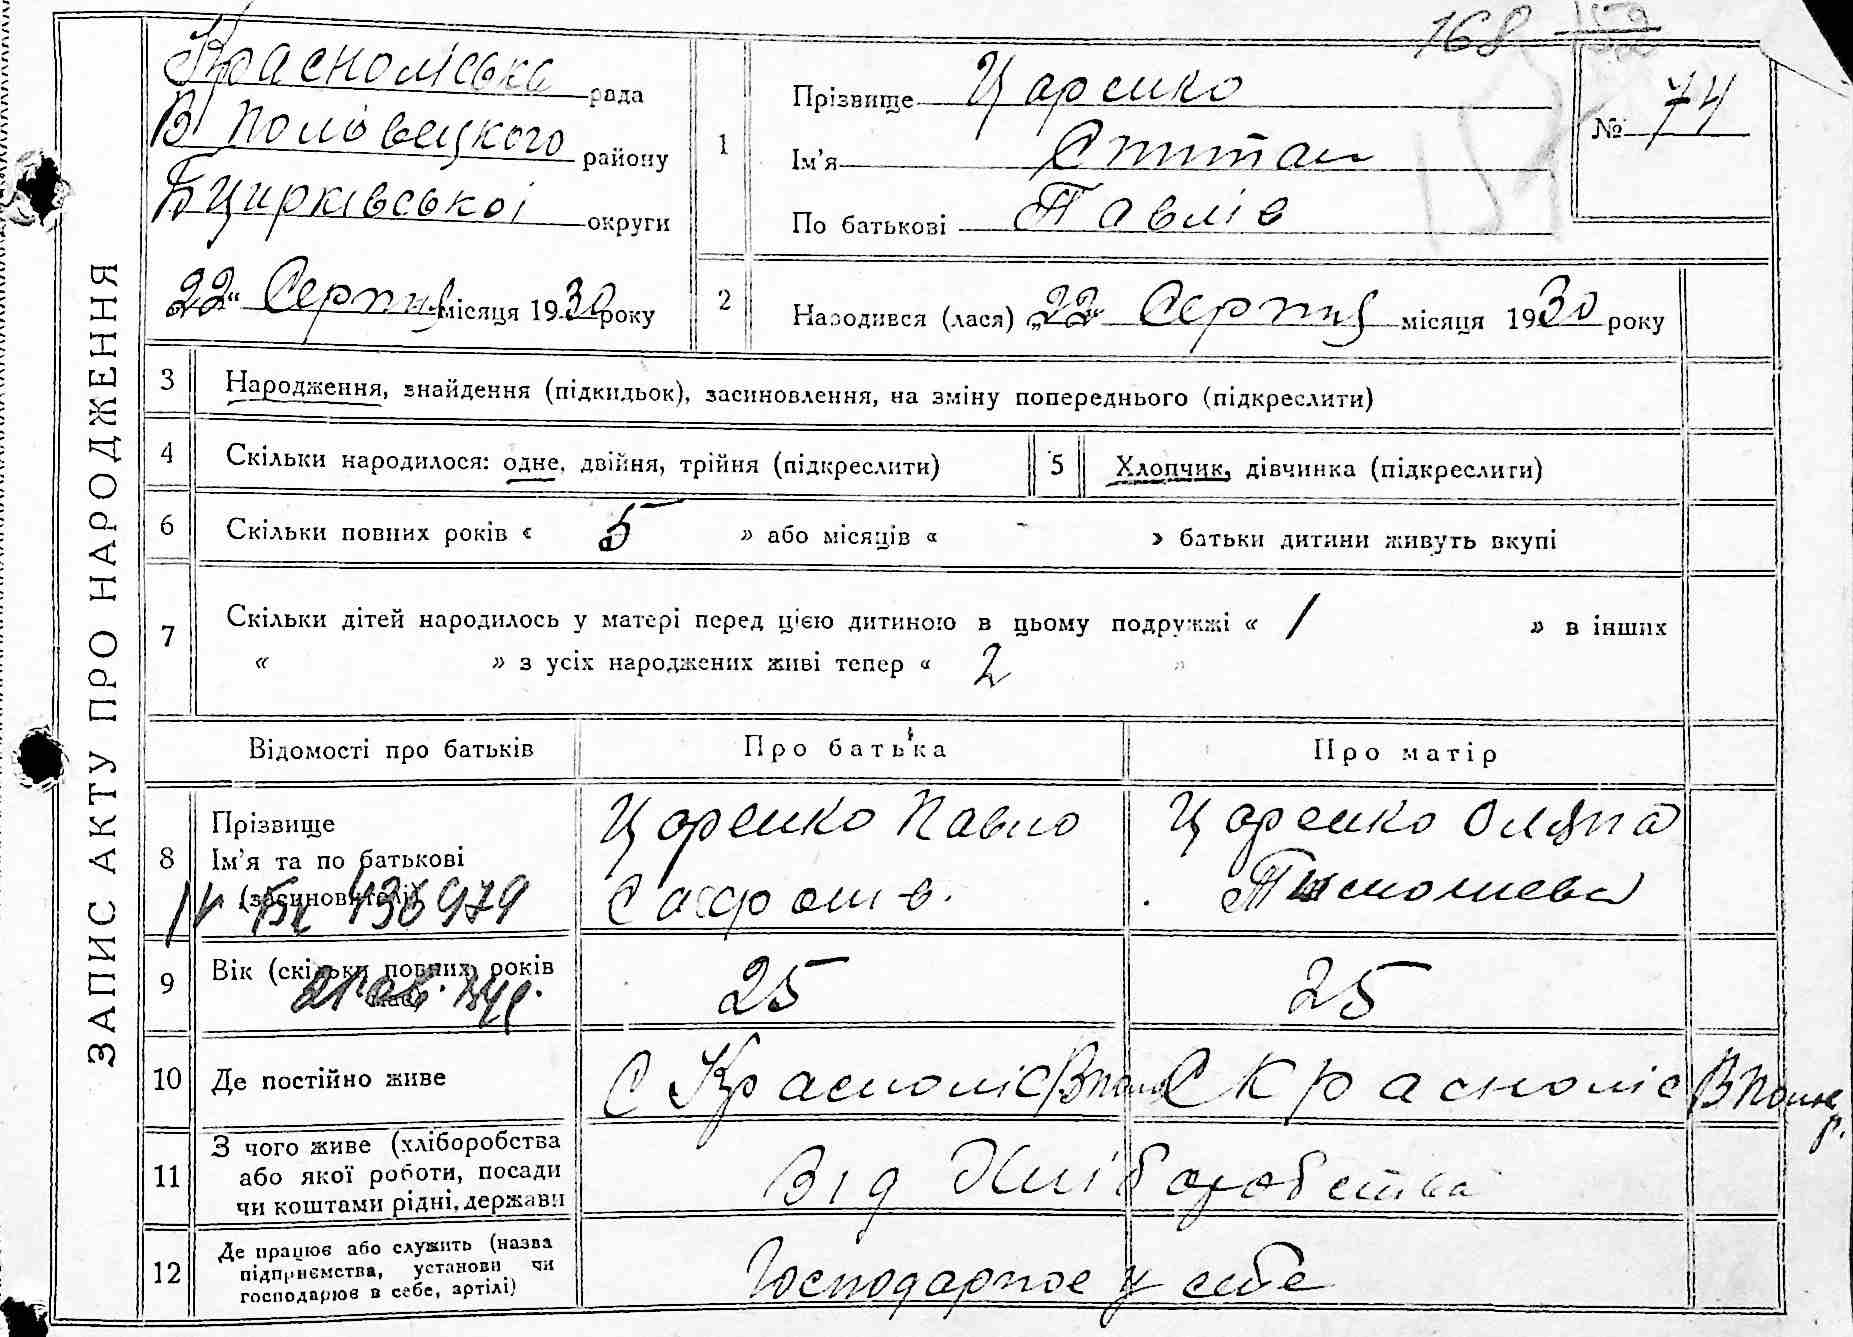 168
ЗАПИС АКТУ ПРО НАРОДЖЕННЯ
Красноліська рада
В Половецкого району
БЦирківської округи
„22“ Серпня місяця 1930 року
1
Прізвище Царенко
Ім’я Степан
По батькові Павлів
№ 74
2
Народився (лася) „22“ Серпня місяця 1930 року
3 Народження, знайдення (підкидьок), засиновлення, на зміну попереднього (підкреслити)
4 Скільки народилося: одне, двійня, трійня (підкреслити)
5 Хлопчик, дівчинка (підкреслити)
6 Скільки повних років « 5 » або місяців « - » батьки дитини живуть вкупі
7 Скільки дітей народилось у матері перед цією дитиною в цьому подружжі « 1 » в інших
« » з усіх народжених живі тепер « 2 »
Відомості про батьків Про батька Про матір
8 Прізвище
Ім’я та по батькові
(засиновителі)
Царенко Павло
Сафронів.
Царенко Оляна
9 Вік (скільки повних років
25 25
10 Де постійно живе С Красноліс С Красноліс
11 З чого живе (хліборобства
або якої роботи, посади
чи коштами рідні, держави
Від Хліборобства
12 Де працює або служить (назва
підприємства, установи чи
господарює в себе, артілі)
Господарює у себе